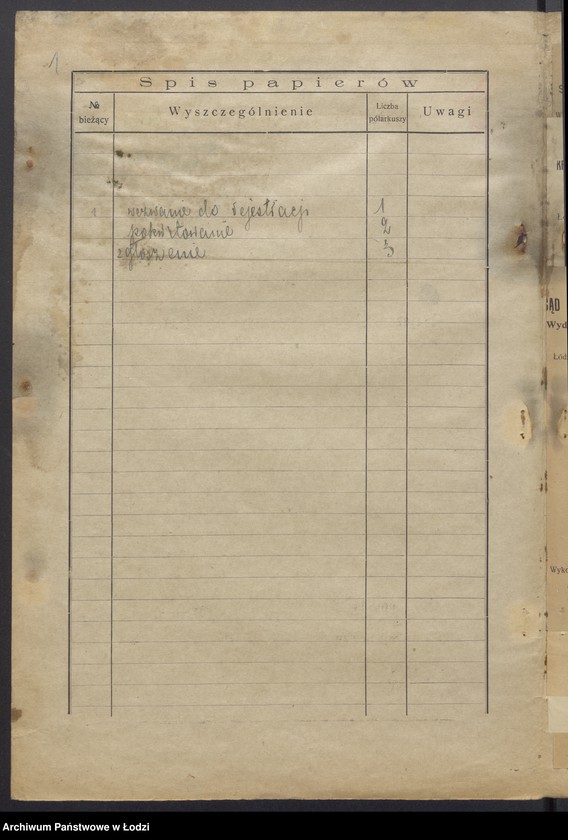 1
Spis papierów
№ bieżący
Wyszczególnienie
Liczba półarkuszy
Uwagi
1 wezwanie do rejestracji 1
pokwitowanie 2
zgłoszenie 3
ĄD
Wyd
Łód
Wyko
Archiwum Państwowe w Łodzi